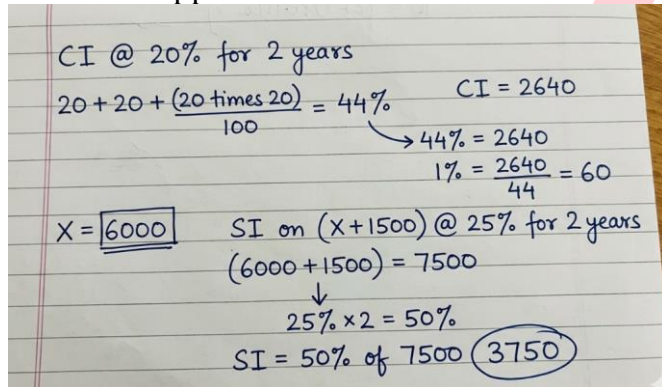 CI @ 20% for 2 years
20 + 20 + (20 times 20)/100 = 44%
CI = 2640
44% = 2640
1% = 2640/44 = 60
X = 6000
SI on (X+1500) @ 25% for 2 years
(6000 + 1500) = 7500
↓
25% × 2 = 50%
SI = 50% of 7500 3750